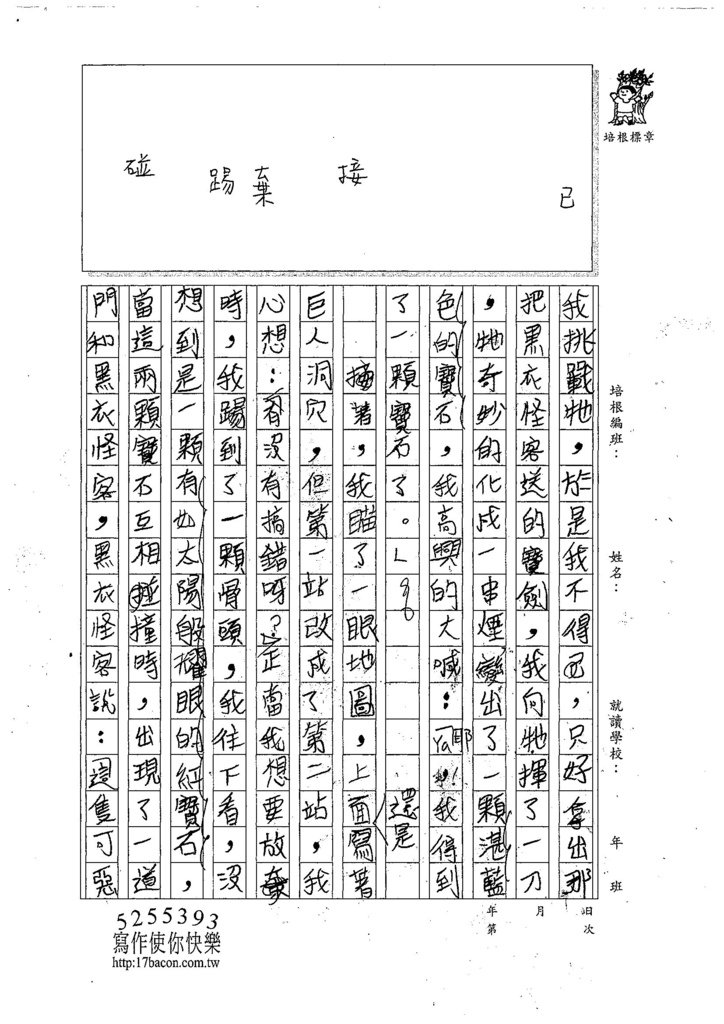 培根標章
碰 踢 棄 接 已
培根編班： 姓名： 就讀學校： 年 班
年 月 日
第 次
我挑戰牠，於是我不得已，只好拿出那
把黑衣怪客送的寶劍，我向牠揮了一刀
，牠奇妙的化成一串煙變出了一顆湛藍
色的寶石，我高興的大喊：「耶！我得到
了一顆寶石了。」
接著，我瞄了一眼地圖，上面還是寫著
巨人洞穴，但第一站改成了第二站，我
心想：有沒有搞錯呀？正當我想要放棄
時，我踢到了一顆骨頭，我往下看，沒
想到是一顆有如太陽般耀眼的紅寶石，
當這兩顆寶石互相碰撞時，出現了一道
門和黑衣怪客，黑衣怪客說：這隻可惡
5255393
寫作使你快樂
http:17bacon.com.tw